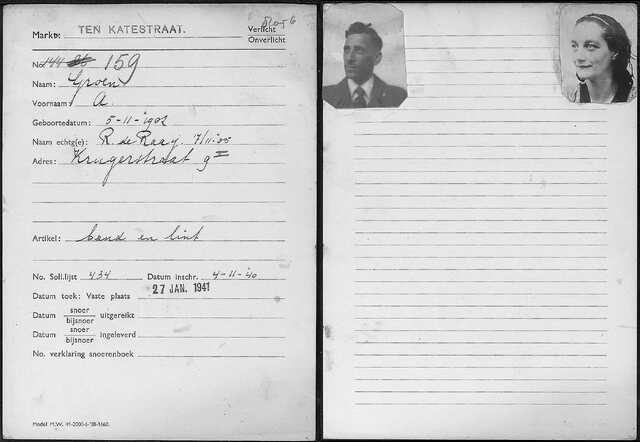 Markt: TEN KATESTRAAT. Verlicht
Onverlicht
No. 144 86 159
Naam: Groen
Voornaam: A.
Geboortedatum: 5-11-1902
Naam echtg(e): R. de Raay. 7/11-05
Adres: Krugerstraat 9 II
Artikel: band en lint
No. Soll.lijst 434 Datum inschr. 4-11-'40
Datum toek: Vaste plaats 27 JAN. 1941
Datum snoer
bijsnoer uitgereikt
Datum snoer
bijsnoer ingeleverd
No. verklaring snoerenboek
Model M.W.